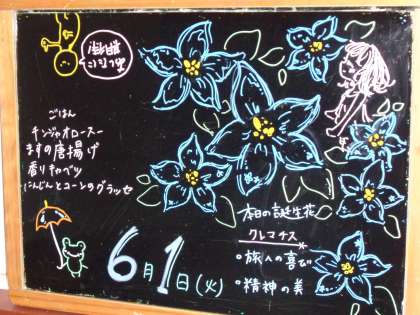 ごはん
チンジャオロースー
ますの唐揚げ
香りキャベツ
にんじんとコーンのグラッセ
本日の誕生花
クレマチス
。旅人の喜び
。精神の美
6月1日(火)